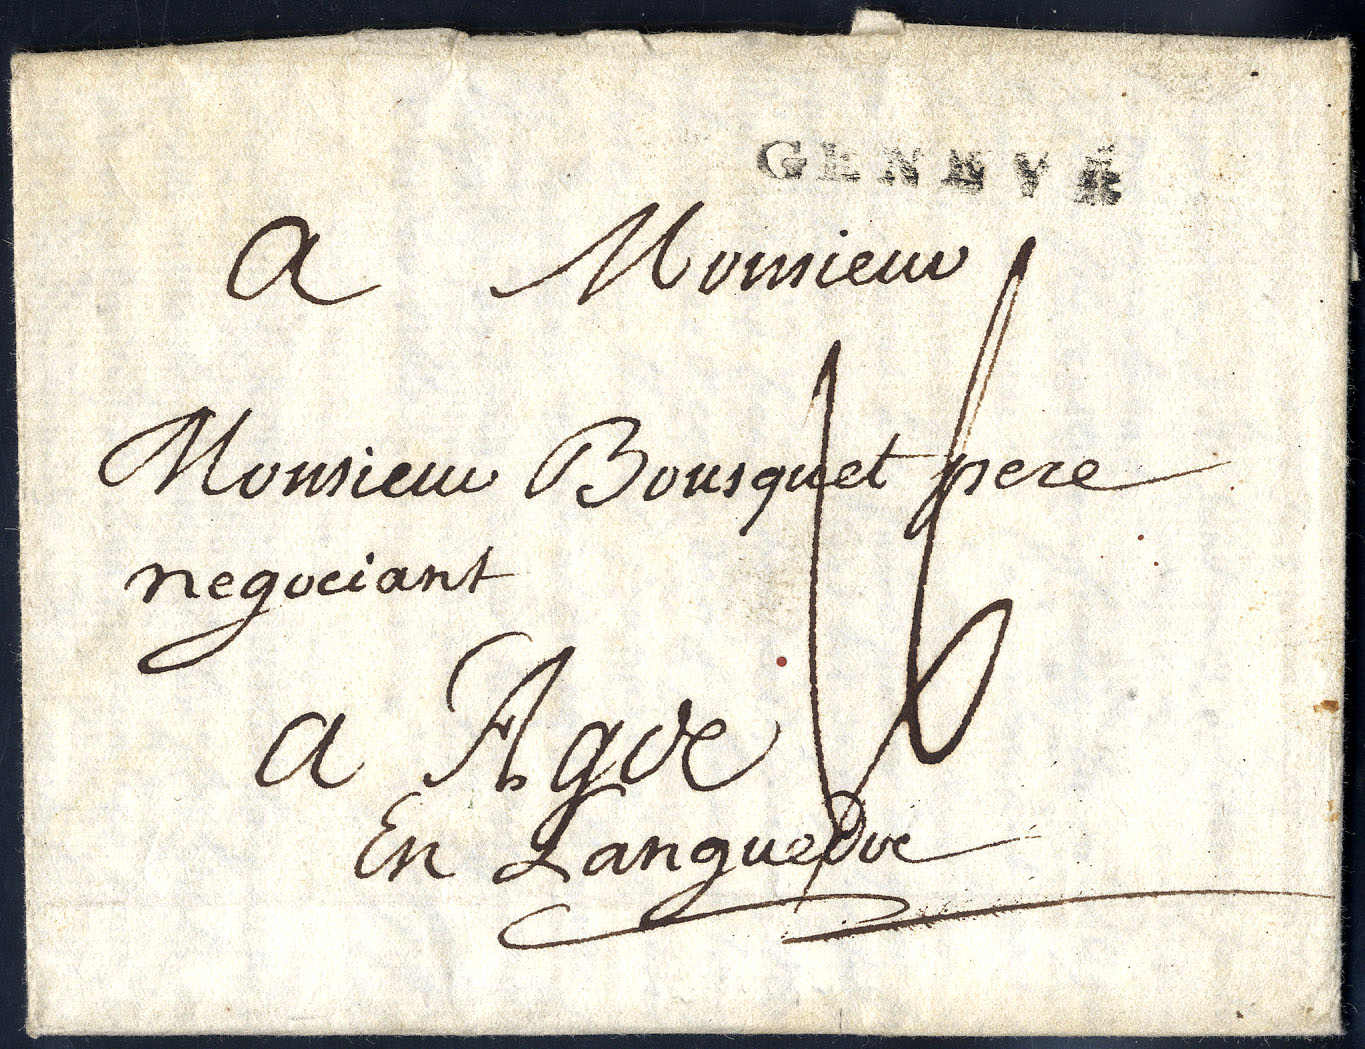 GENEVE
a Monsieur
Monsieur Bousquet pere
negociant
16
a Agde
En Languedoc